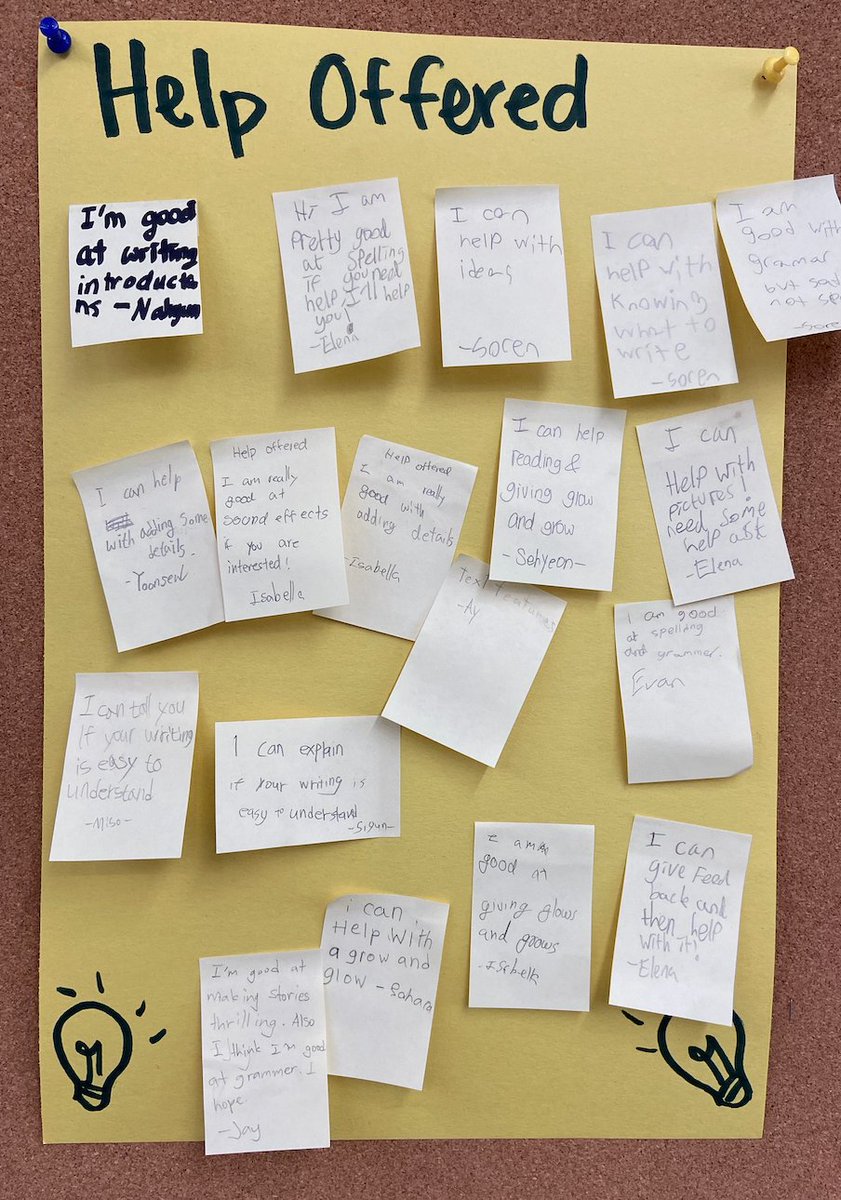 Help Offered
I'm good
at writing
introducta
ns - Nahyun
Hi I am
pretty good
at spelling
if you need
help I'll help
you!
-Elena
I can
help with
ideas
-Soren
I can
help with
knowing
what to
write
-Soren
I am
good with
grammar
but sad
not spe
-Sore
I can help
with adding some
details.
-Yoonseul
Help offered
I am really
good at
sound effects
if you are
interested!
Isabella
Help offered
I am really
good with
adding details
-Isabella
I can help
reading &
giving glow
and grow
-Sehyeon-
I can
Help with
pictures!
need some
help ask
-Elena
text features
-Ay
I am good
at spelling
and grammer.
Evan
I can tell you
If your writing
is easy to
understand
-Miso-
I can explain
if your writing is
easy to understand
-Sigun-
I am
good at
giving glows
and grows
-Isbella
I can
give Feed
back and
then help
with it!
-Elena
i can
Help With
a grow and
glow - Sahara
I'm good at
making stories
thrilling. Also
I think I'm good
at grammer. I
hope
-Jay